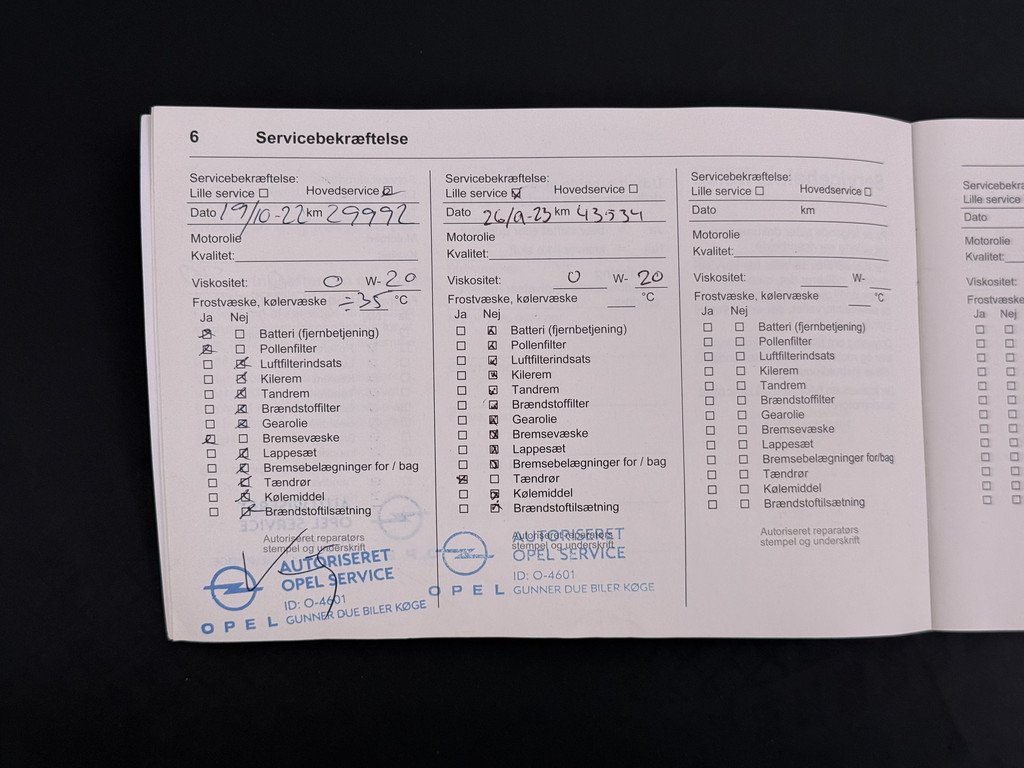 6 Servicebekræftelse
Servicebekræftelse:
Lille service ☐ Hovedservice ☑
Dato 19/10-22 km 29992
Motorolie
Kvalitet:
Viskositet: 0 W- 20
Frostvæske, kølervæske ÷35 °C
Ja Nej
☒ ☐ Batteri (fjernbetjening)
☒ ☐ Pollenfilter
☐ ☒ Luftfilterindsats
☐ ☒ Kilerem
☐ ☒ Tandrem
☐ ☒ Brændstoffilter
☐ ☒ Gearolie
☒ ☐ Bremsevæske
☐ ☒ Lappesæt
☐ ☒ Bremsebelægninger for / bag
☐ ☒ Tændrør
☐ ☒ Kølemiddel
☐ ☒ Brændstoftilsætning
Autoriseret reparatørs
stempel og underskrift
AUTORISERET
OPEL SERVICE
ID: O-4601
OPEL GUNNER DUE BILER KØGE
Servicebekræftelse:
Lille service ☒ Hovedservice ☐
Dato 26/9-23 km 43534
Motorolie
Kvalitet:
Viskositet: 0 W- 20
Frostvæske, kølervæske °C
Ja Nej
☐ ☒ Batteri (fjernbetjening)
☐ ☒ Pollenfilter
☐ ☒ Luftfilterindsats
☐ ☒ Kilerem
☐ ☒ Tandrem
☐ ☒ Brændstoffilter
☐ ☒ Gearolie
☐ ☒ Bremsevæske
☐ ☒ Lappesæt
☐ ☒ Bremsebelægninger for / bag
☒ ☐ Tændrør
☐ ☒ Kølemiddel
☐ ☒ Brændstoftilsætning
Autoriseret reparatørs
stempel og underskrift
AUTORISERET
OPEL SERVICE
ID: O-4601
OPEL GUNNER DUE BILER KØGE
Servicebekræftelse:
Lille service ☐ Hovedservice ☐
Dato km
Motorolie
Kvalitet:
Viskositet: W-
Frostvæske, kølervæske °C
Ja Nej
☐ ☐ Batteri (fjernbetjening)
☐ ☐ Pollenfilter
☐ ☐ Luftfilterindsats
☐ ☐ Kilerem
☐ ☐ Tandrem
☐ ☐ Brændstoffilter
☐ ☐ Gearolie
☐ ☐ Bremsevæske
☐ ☐ Lappesæt
☐ ☐ Bremsebelægninger for/bag
☐ ☐ Tændrør
☐ ☐ Kølemiddel
☐ ☐ Brændstoftilsætning
Autoriseret reparatørs
stempel og underskrift
Lille service
Dato
Motorolie
Kvalitet:
Viskositet:
Ja Nej